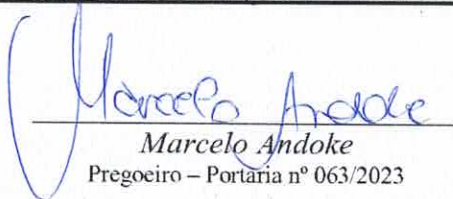 Marcelo Andoke
Marcelo Andoke
Pregoeiro – Portaria nº 063/2023